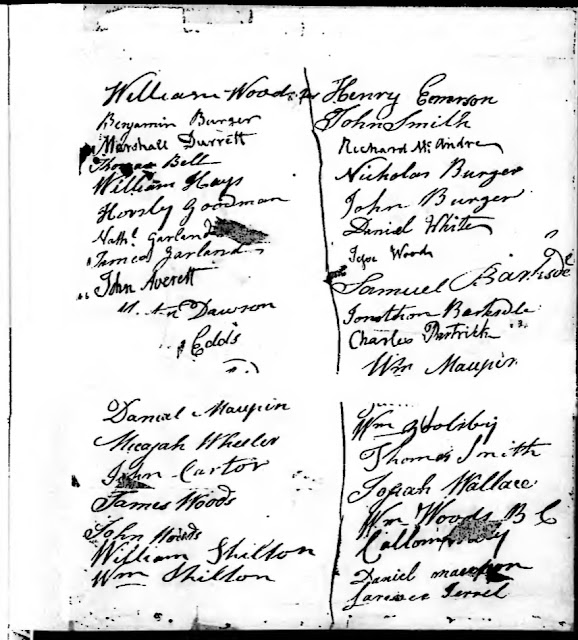 William Woods
Benjamin Burger
Marshall Durrett
Thomas Bell
William Hays
Horsly Goodman
Nathl. Garland
James Garland
John Averett
Dawson
Edds
Henry Emerson
John Smith
Richard McAndre
Nicholas Burger
John Burger
Daniel White
Woods
Samuel Barksde
Jonathan Barksdle
Charles Patrick
Wm Maupin
Daniel Maupin
Micajah Wheeler
John Carter
James Woods
John Woods
William Shilton
Wm Shilton
Wm
Thomas Smith
Josiah Wallace
Wm Woods B C
Daniel maupin
Jerrel